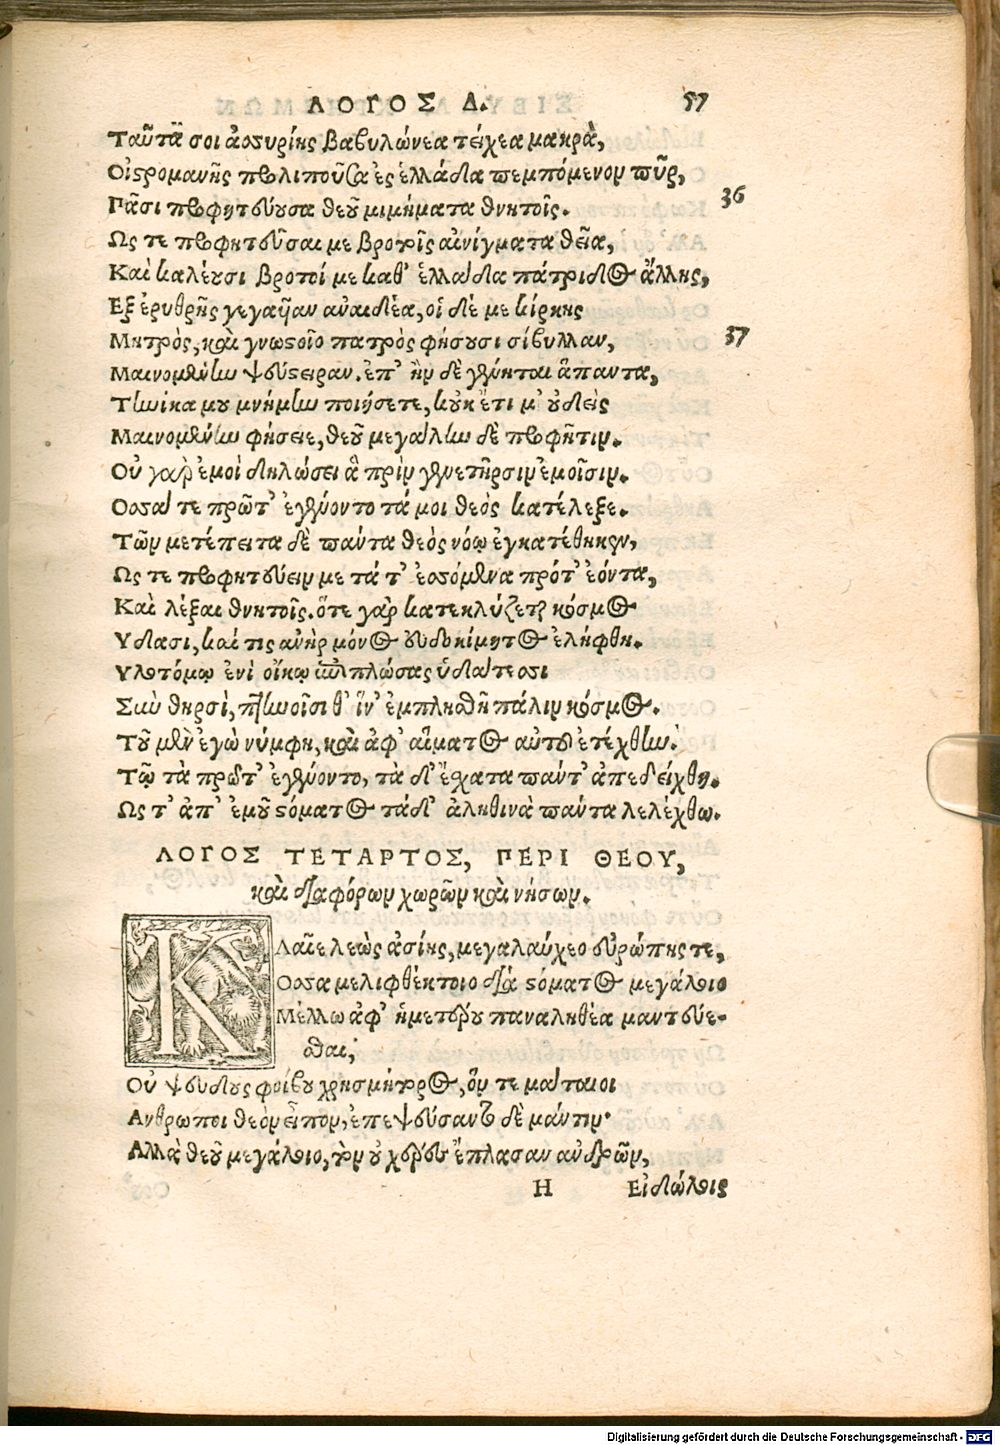 ΛΟΓΟΣ Δ. 57
Ταῦτά σοι ἀσσυρίης βαβυλώνεα τείχεα μακρὰ,
Οἰστρομανὴς προλιποῦσα ἐς ἑλλάδα πεμπόμενον πῦρ,
Πᾶσι προφητεύουσα θεοῦ μιμήματα θνητοῖς. 36
Ως τε προφητεῦσαι με βροτοῖς αἰνίγματα θεῖα,
Καὶ καλέουσι βροτοί με καθ' ἑλλάδα πάτριδος ἄλλης,
Εξ ἐρυθρῆς γεγαῆαν ἀναιδέα, οἱ δέ με κίρκης
Μητρὸς, καὶ γνωστοῖο πατρὸς φήσουσι σίβυλλαν, 37
Μαινομένην ψεύστειραν. ἐπ' ἢν δὲ γένηται ἅπαντα,
Τηνίκα μου μνήμην ποιήσετε, κοὐκ ἔτι μ' οὐδεὶς
Μαινομένην φήσειε, θεοῦ μεγάλην δὲ προφῆτιν.
Οὐ γὰρ ἐμοὶ δηλώσει ἃ πρὶν γενετῆρσιν ἐμοῖσιν.
Οσσα τε πρῶτ' ἐγένοντο τά μοι θεὸς κατέλεξε.
Τῶν μετέπειτα δὲ πάντα θεὸς νόῳ ἐγκατέθηκεν,
Ως τε προφητεύειν με τά τ' ἐσσόμενα πρότ' ἐόντα,
Καὶ λέξαι θνητοῖς. ὅτε γὰρ κατεκλύζετο κόσμος
Υδασι, καί τις ἀνὴρ μόνος εὐδοκίμητος ἐλήφθη.
Υλοτόμῳ ἐνὶ οἴκῳ ἐπιπλώσας ὑδάτεσσι
Σὺν θηρσὶ, πτηνοῖσι θ' ἵν' ἐμπλησθῆ πάλιν κόσμος.
Τοῦ μὲν ἐγὼ νύμφη, καὶ ἀφ' αἵματος αὐτοῦ ἐτέχθην.
Τῷ τὰ πρῶτ' ἐγένοντο, τὰ δ' ἔσχατα πάντ' ἀπεδείχθη.
Ως τ' ἀπ' ἐμοῦ στόματος τάδ' ἀληθινὰ πάντα λελέχθω.
ΛΟΓΟΣ ΤΕΤΑΡΤΟΣ, ΠΕΡΙ ΘΕΟΥ,
καὶ διαφόρων χωρῶν καὶ νήσων.
Κλαῖε λεὼς ἀσίης, μεγαλαύχεο εὐρώπης τε,
Οσσα μελιφθέκτοιο διὰ στόματος μεγάλοιο
Μέλλω ἀφ' ἡμετέρου παναληθέα μαντεύε-
σθαι;
Οὐ ψευδοῦς φοίβου χρησμήγορος, ὅν τε μάταιοι
Ανθρωποι θεὸν εἶπον, ἐπεψεύσαντο δὲ μάντιν·
Αλλὰ θεοῦ μεγάλοιο, τὸν οὐ χέρες ἔπλασαν ἀνδρῶν,
Η Εἰδώλοις
Digitalisierung gefördert durch die Deutsche Forschungsgemeinschaft - DFG